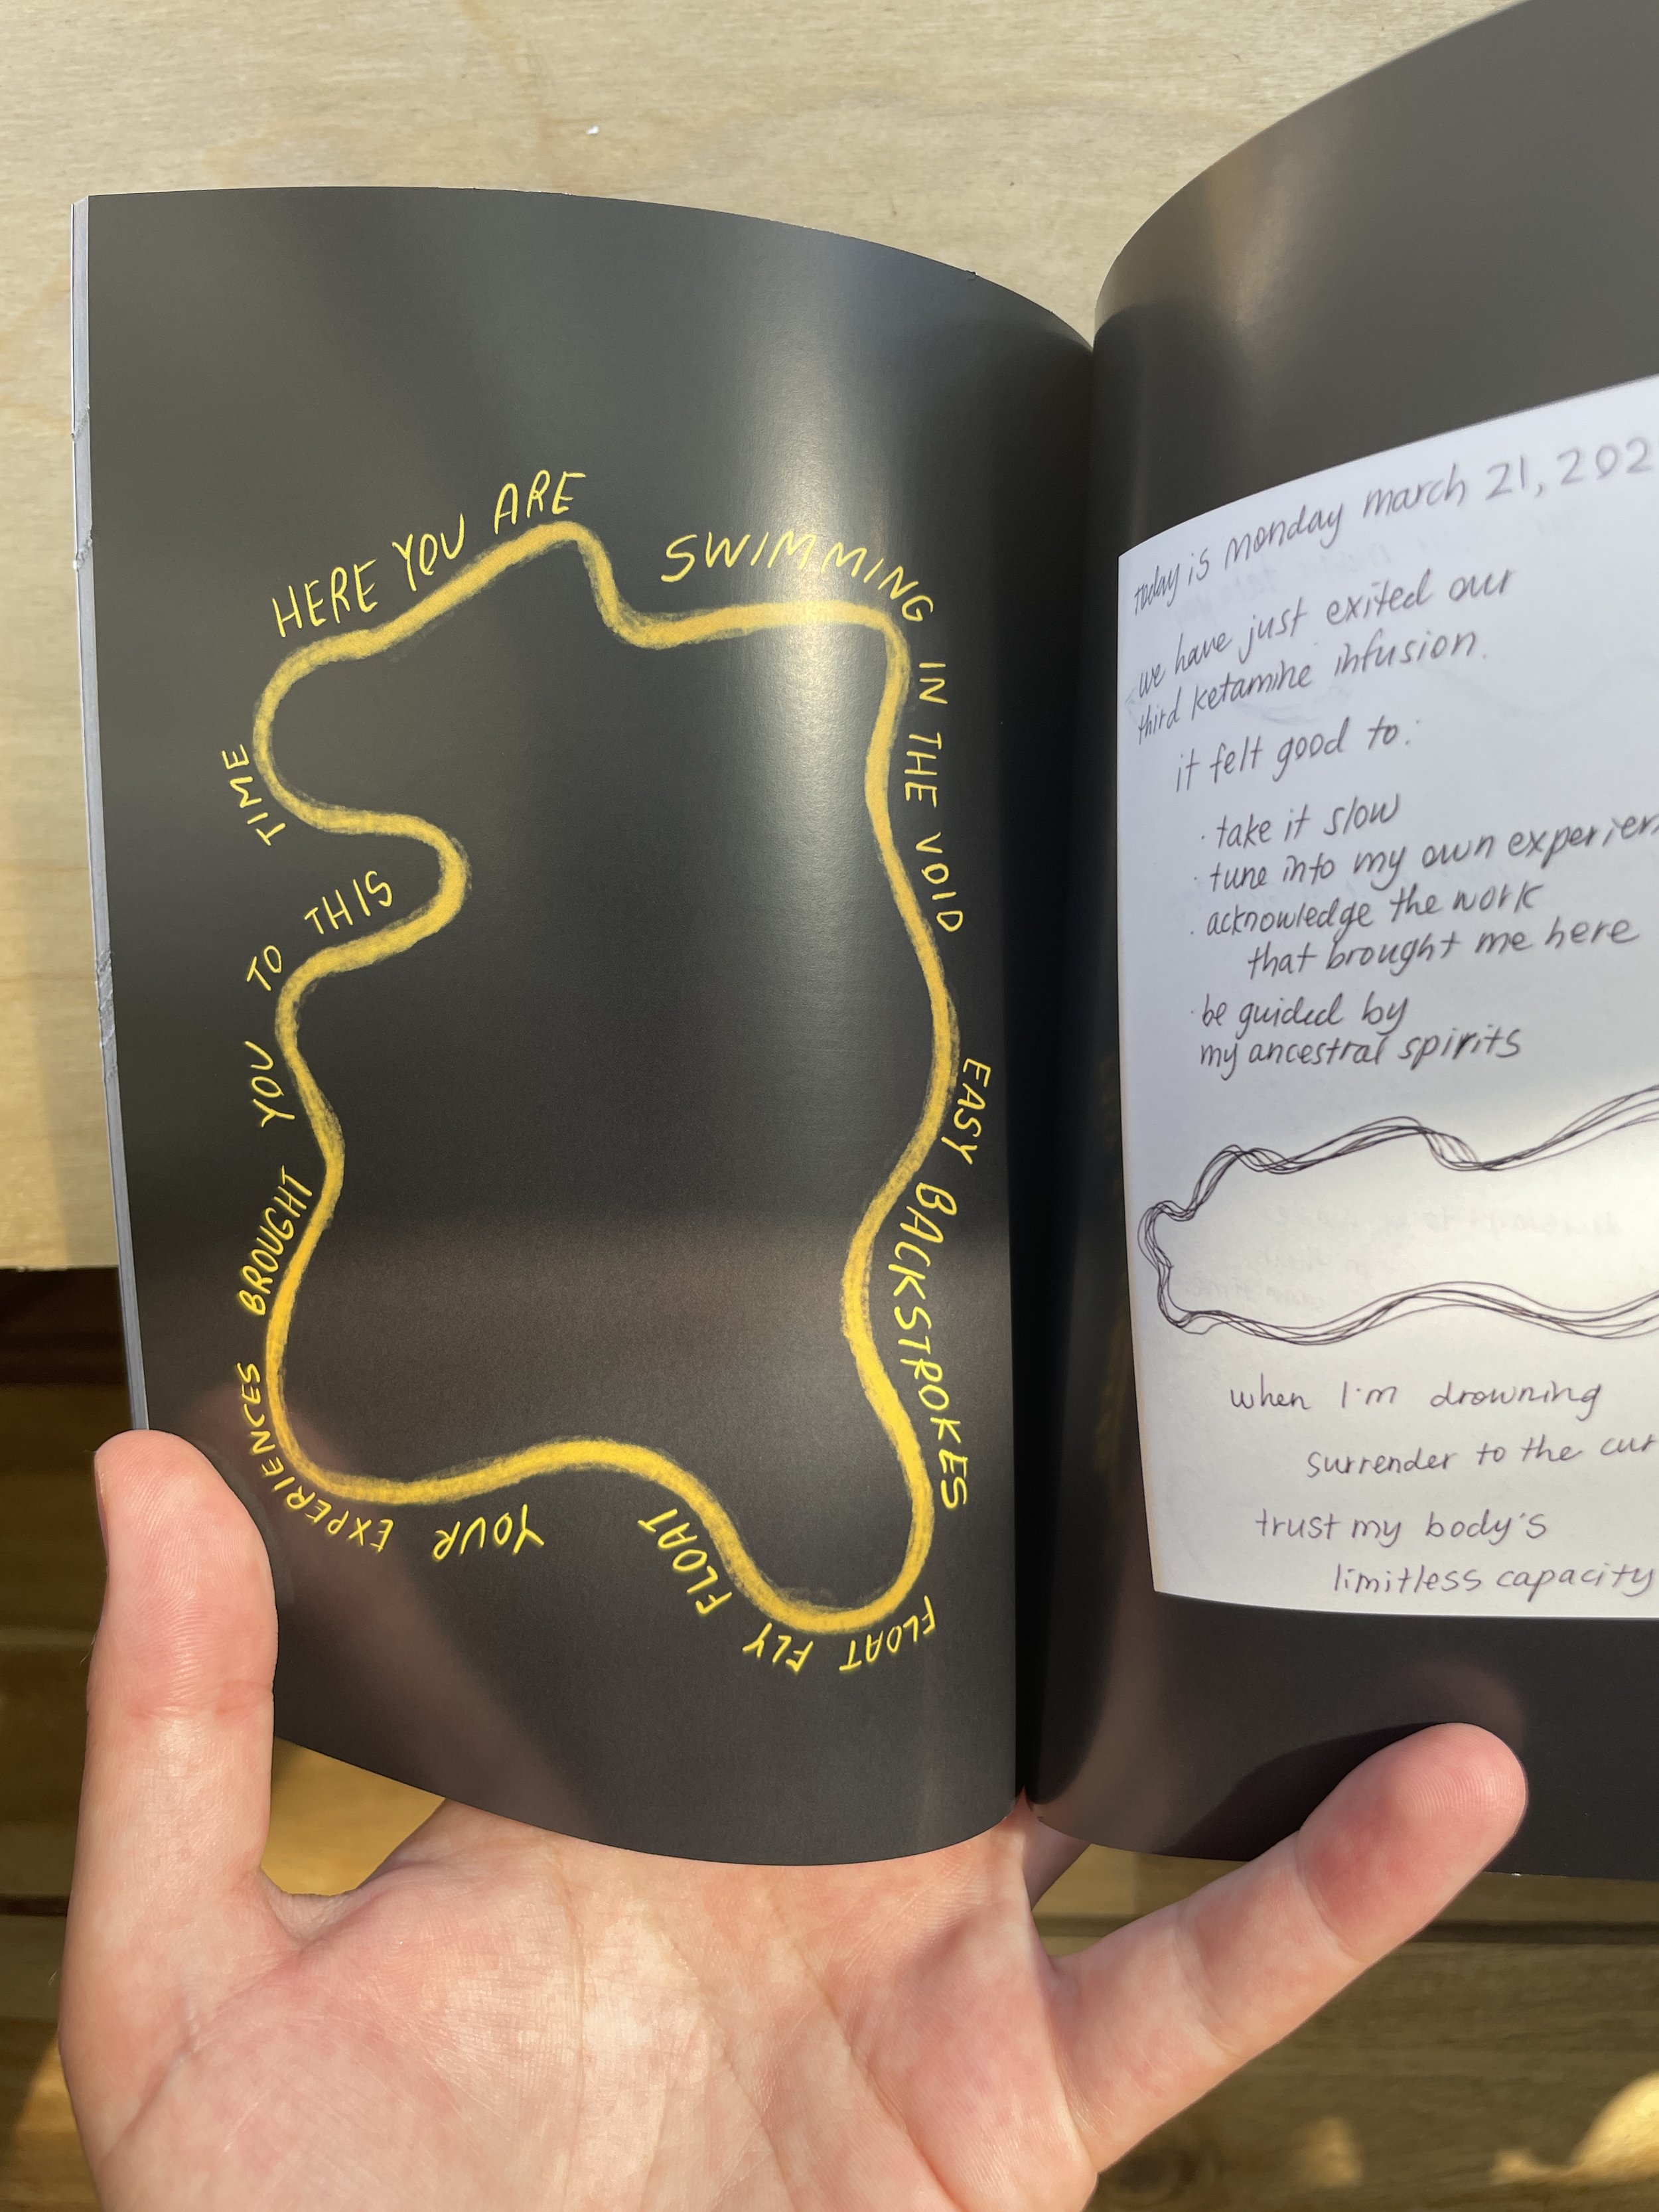 HERE YOU ARE
SWIMMING
IN THE VOID
EASY BACKSTROKES
FLOAT FLY FLOAT
YOUR EXPERIENCES BROUGHT YOU TO THIS TIME
today is monday march 21, 202
we have just exited our
third ketamine infusion.
it felt good to:
· take it slow
· tune into my own experien
· acknowledge the work
that brought me here
· be guided by
my ancestral spirits
when I'm drowning
surrender to the cur
trust my body's
limitless capacity